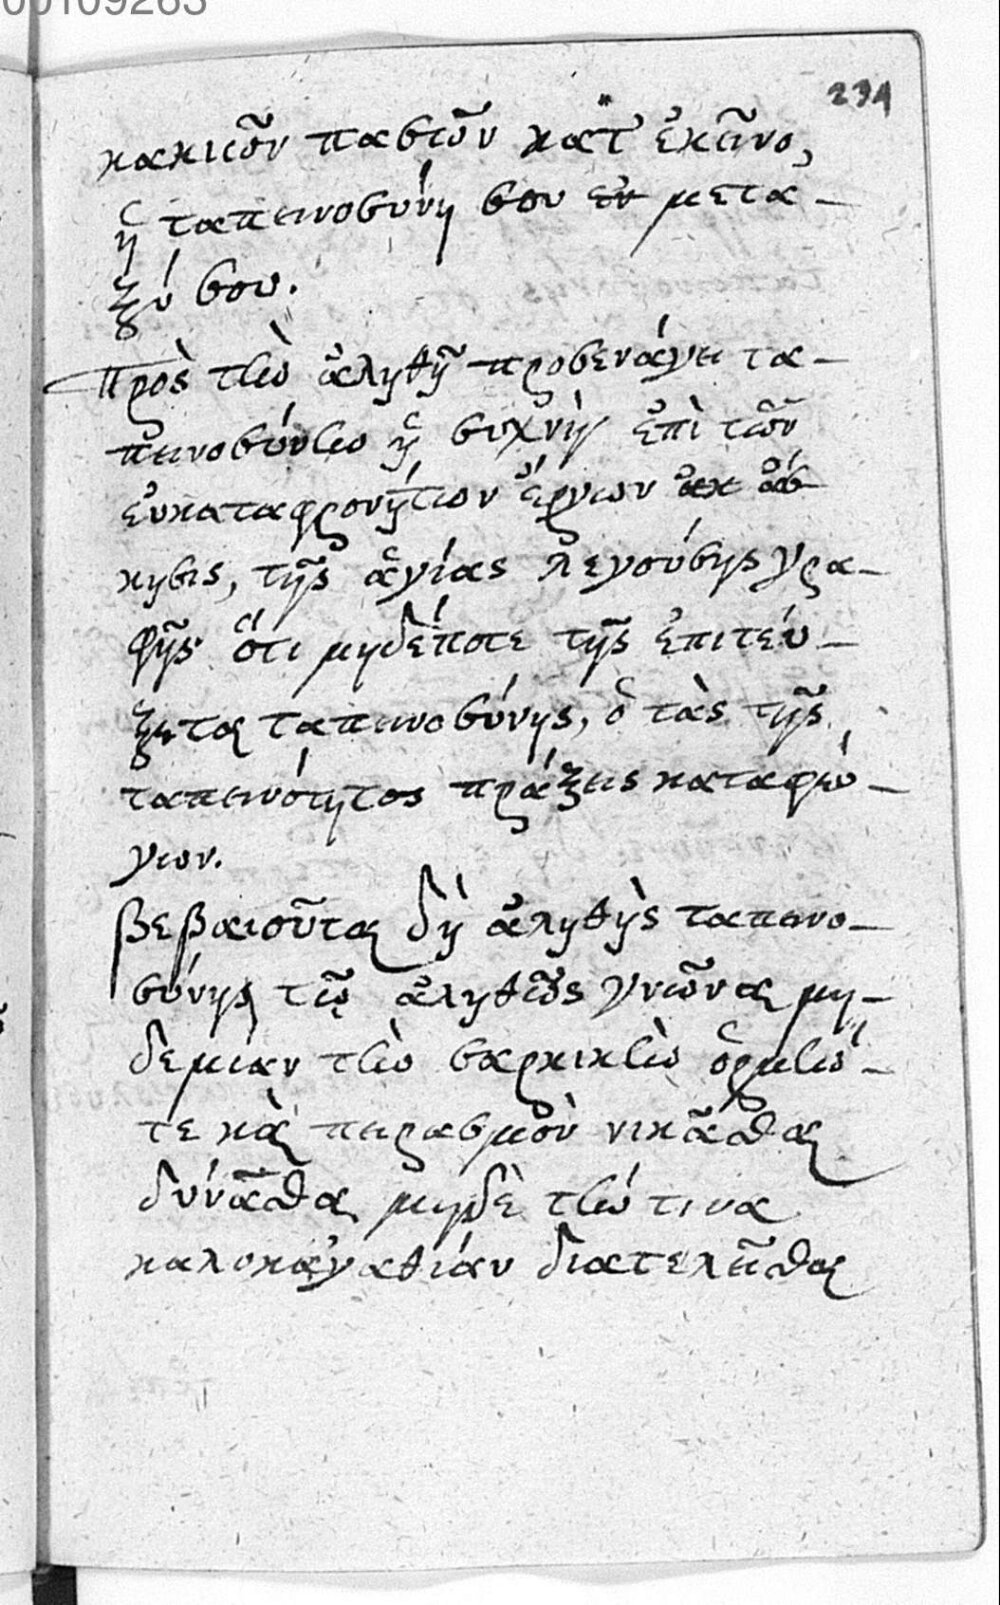 00109263
234
κακιῶν πασῶν κατ' ἐκεῖνο,
ἡ ταπεινοσύνη σου ἐν μετα-
ξύ σου.
Πρὸς τὴν ἀληθῆ προσενάγει τα-
πεινοσύνην ἡ συχνὴ ἐπὶ τῶν
εὐκαταφρονήτων ἔργων ἄσ-
κησις, τῆς ἁγίας λεγούσης γρα-
φῆς· ὅτι μηδέποτε τῆς ἐπιτεύ-
ξεται ταπεινοσύνης, ὁ τὰς τῆς
ταπεινότητος πράξεις καταφεύ-
γων.
βεβαιοῦται δὴ ἀληθὴς ταπεινο-
σύνης τῷ ἀληθῶς γνῶναι μη-
δεμίαν τὴν σαρκικὴν ὁρμὴν-
τε καὶ πειρασμὸν νικᾶσθαι
δύνασθαι μηδὲ τήν τινα
καλοκἀγαθίαν διατελεῖσθαι